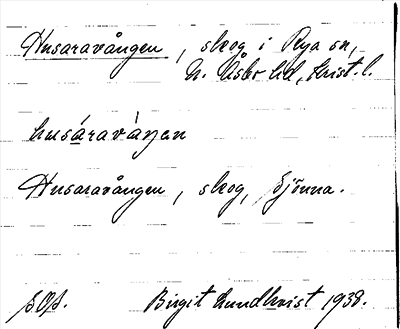 Husaravången, skog i Rya sn,
N. Åsbo hd, Krist. l.
husáravàŋen
Husaravången, skog, Sjönna.
Birgit Lundkvist 1938.